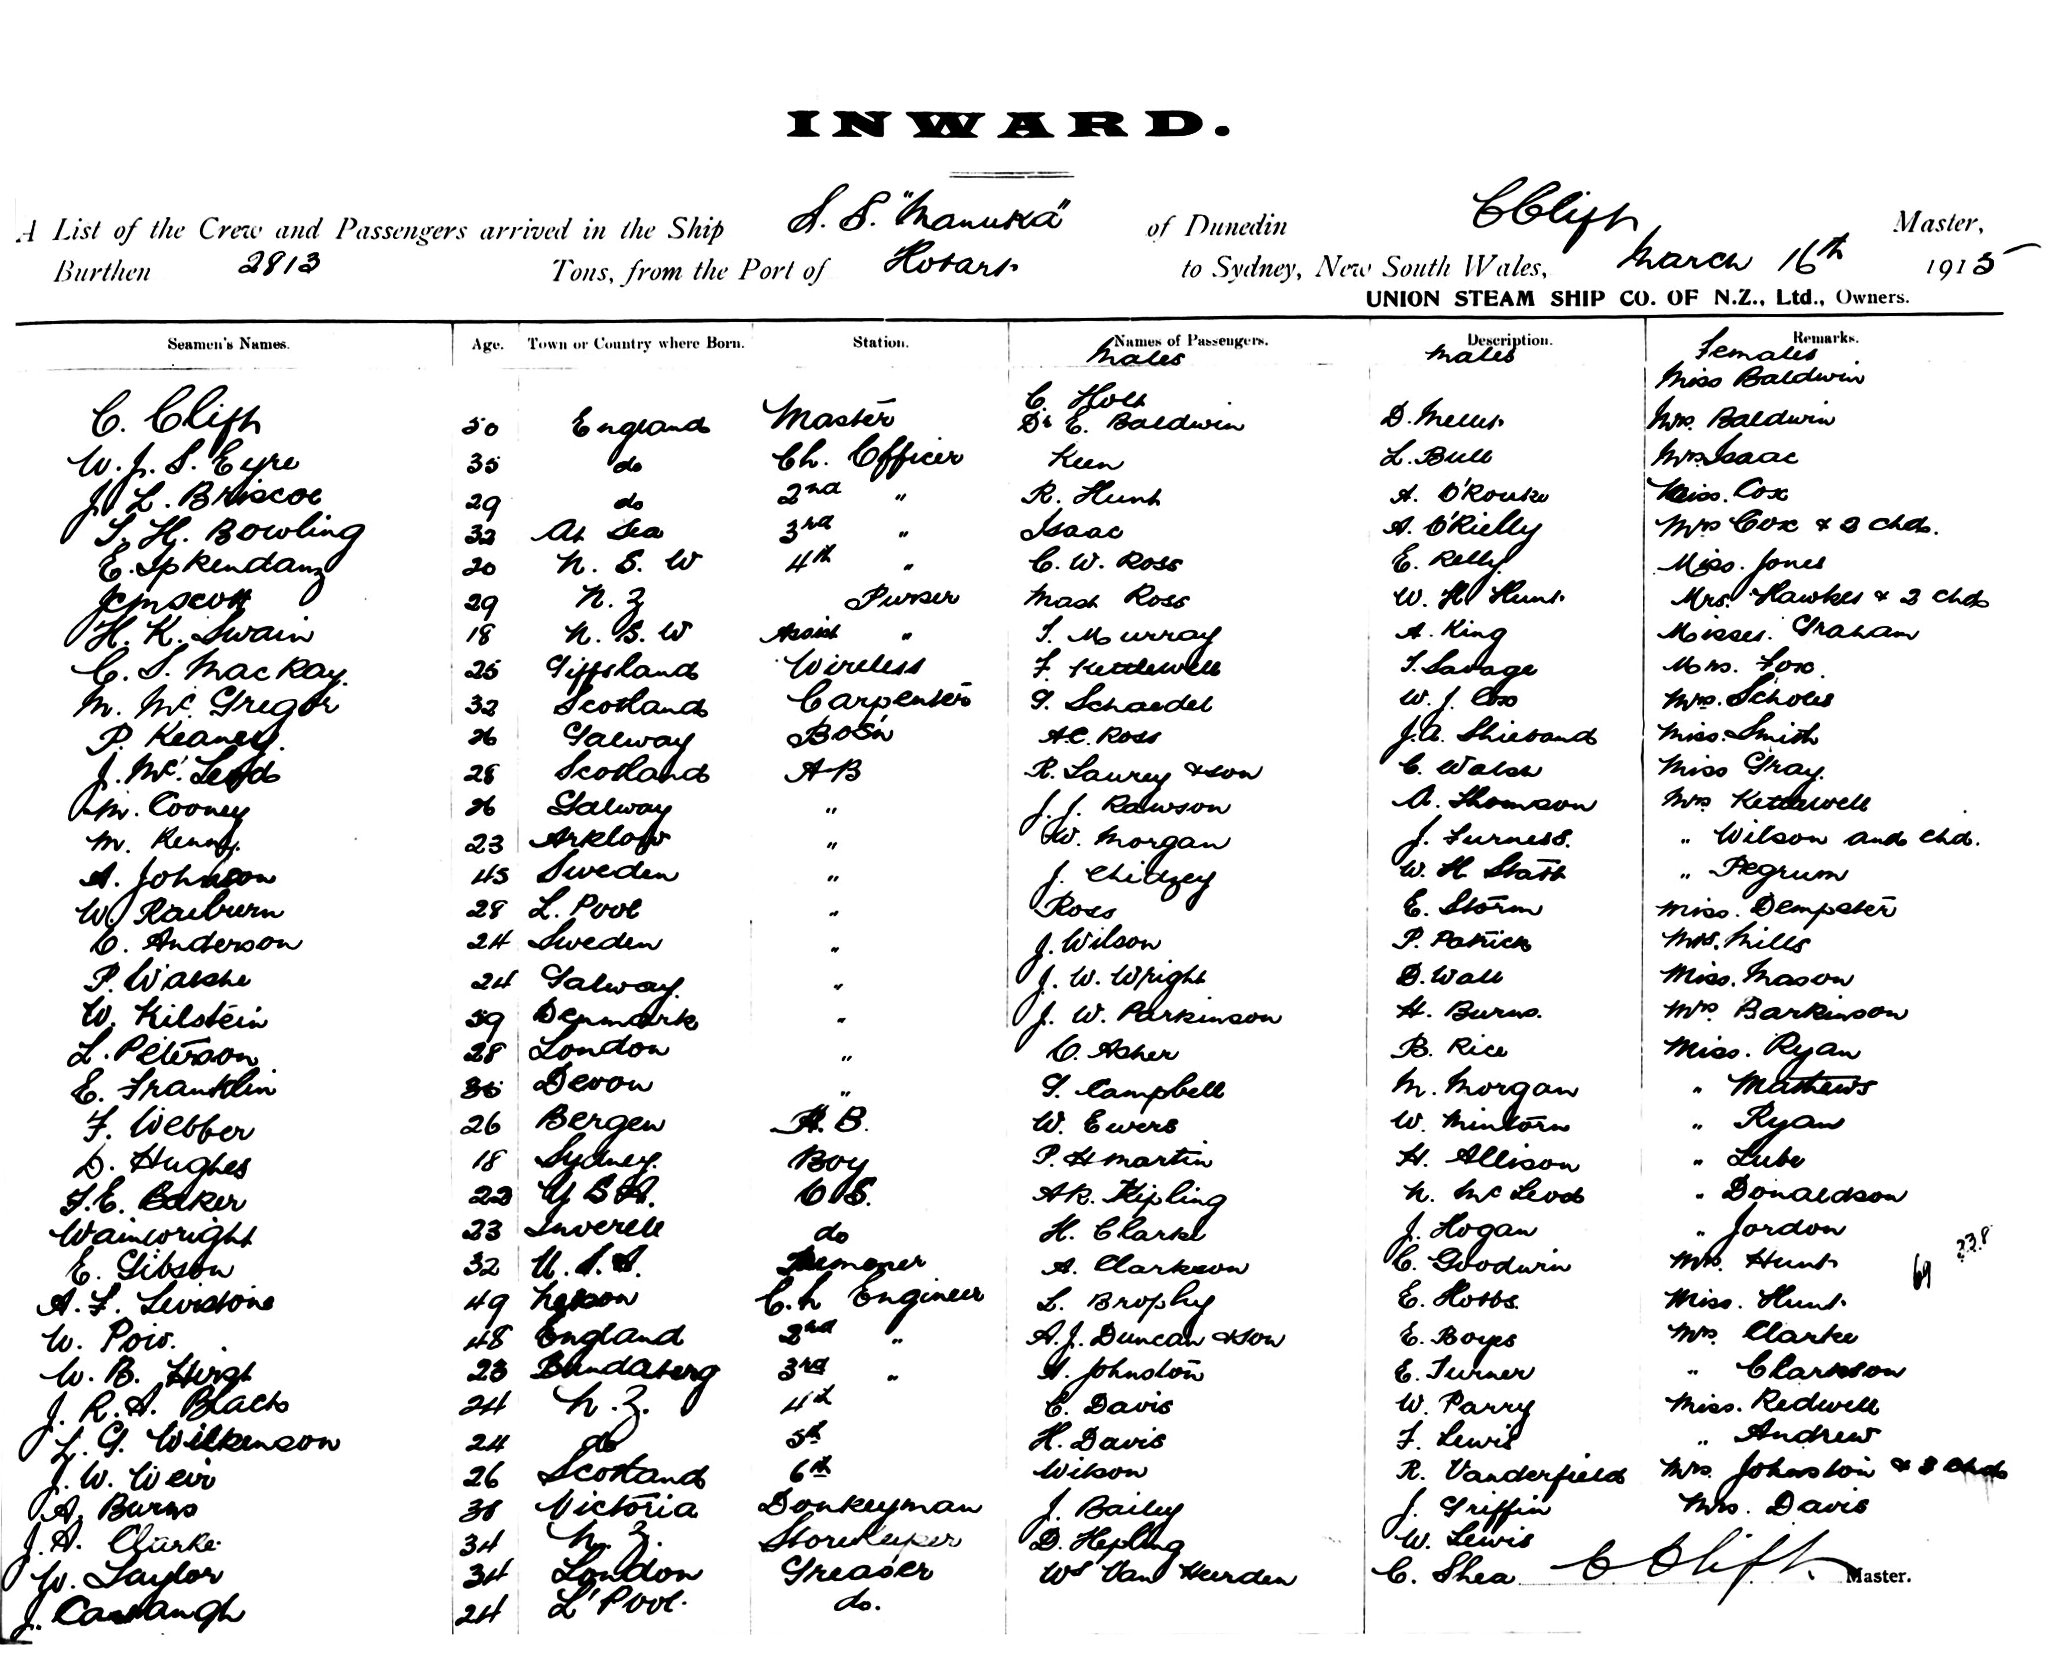 INWARD.
A List of the Crew and Passengers arrived in the Ship S. S. "Manuka" of Dunedin C Clift Master,
Burthen 2813 Tons, from the Port of Hobart to Sydney, New South Wales, March 16th 1915
UNION STEAM SHIP CO. OF N.Z., Ltd., Owners.
Seamen's Names. Age. Town or Country where Born. Station. Names of Passengers. Description. Remarks.
Males Males Females
Miss Baldwin
C. Holt
C. Clift 50 England Master Dr E. Baldwin D. Mellis Mrs. Baldwin
W. J. S. Eyre 35 do Ch. Officer Keen L. Bull Mrs Isaac
J. L. Briscoe 29 do 2nd " R. Hunt A. O'Rouke Miss. Cox
S. H. Bowling 32 At Sea 3rd " Isaac A. O'Rielly Mrs Cox & 2 chds.
E. Ipkendanz 20 N. S. W 4th " C. W. Ross E. Kelly Miss. Jones
29 N. Z Purser Mast Ross W. H. Hunt Mrs. Hawkes & 2 chds
H. K. Swain 18 N. S. W Assist " T. Murray A. King Misses. Graham
C. S. MacKay. 25 Gippsland Wireless F. Kettlewell T. Savage Mrs. Fox.
M. McGregor 32 Scotland Carpenter G. Schaedel W. J. Cox Mrs. Scholes
P. Keaney. 26 Galway Bos'n A.C. Ross J. A. Shieband Miss. Smith
J. McLeod 28 Scotland AB R. Laurey & son C. Walsh Miss Gray.
M. Cooney 26 Galway " J. J. Rawson A. Thomson Mrs Kettlewell
M. Kenny. 23 Arklow " W. Morgan J. Furness. " Wilson and chd.
A. Johnson 45 Sweden " J. Chidzey W. H Statt " Pegrum
W Raeburn 28 L. Pool " Ross E. Storm Miss. Dempster
C. Anderson 24 Sweden " J. Wilson P. Patrick Mrs. Mills
P. Walshe 24 Galway. " J. W. Wright D. Wall Miss. Mason
W. Kilstein 59 Denmark " J. W. Parkinson H. Burns. Mrs Barkinson
L. Peterson 28 London " C. Asher B. Rice Miss. Ryan
E. Franklin Devon " G. Campbell M. Morgan " Mathews
F. Webber 26 Bergen A. B. W. Ewers W. Mintorn " Ryan
D. Hughes 18 Sydney. Boy P. H Martin H. Allison " Lube
F. E. Baker 22 U S A. O S. A R. Kipling N. McLeod " Donaldson
Wainwright 23 Inverell do H. Clarke J. Hogan " Jordon
E. Gibson 32 U. S. A. Trimmer A. Clarkson C. Goodwin Mrs. Hunt 69 228
A. F. Levistone 49 Nelson Ch Engineer L. Brophy E. Hobbs. Miss. Hunt
W. Pow. 48 England 2nd " A. J. Duncan & son E. Boyes Mrs. Clarke
W. B. Hirst 23 Bundaberg 3rd " A. Johnston E. Turner " Clarkson
J. R. A. Black 24 N. Z. 4th C. Davis W. Parry Miss. Redwell
L. G. Wilkenson 24 do 5th H. Davis F. Lewis " Andrew
J. W. Weir 26 Scotland 6th Wilson R. Vanderfield Mrs. Johnston & 3 chds
A. Burns 38 Victoria Donkeyman J. Bailey J. Griffin Mrs. Davis
J. A. Clarke. 34 N. Z. Storekeeper D. Hepling W. Lewis
W. Taylor 34 London Greaser Ws Van Heerden C. Shea C Clift. Master.
J. Cavanaugh 24 L'Pool. do.